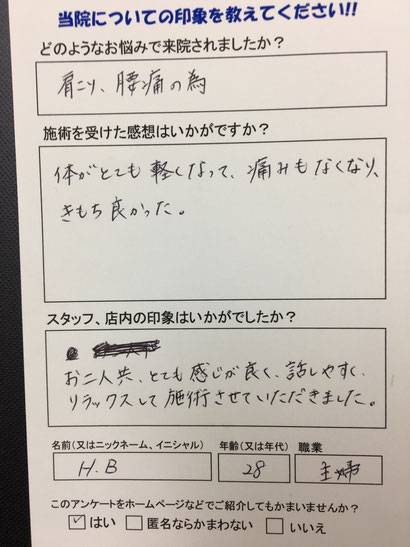 当院についての印象を教えてください!!
どのようなお悩みで来院されましたか?
肩こり、腰痛の為
施術を受けた感想はいかがですか?
体がとても軽くなって、痛みもなくなり、
きもち良かった。
スタッフ、店内の印象はいかがでしたか?
お二人共、とても感じが良く、話しやすく、
リラックスして施術させていただきました。
名前(又はニックネーム、イニシャル) 年齢(又は年代) 職業
H.B 28 主婦
このアンケートをホームページなどでご紹介してもかまいませんか?
✓はい □匿名ならかまわない □いいえ